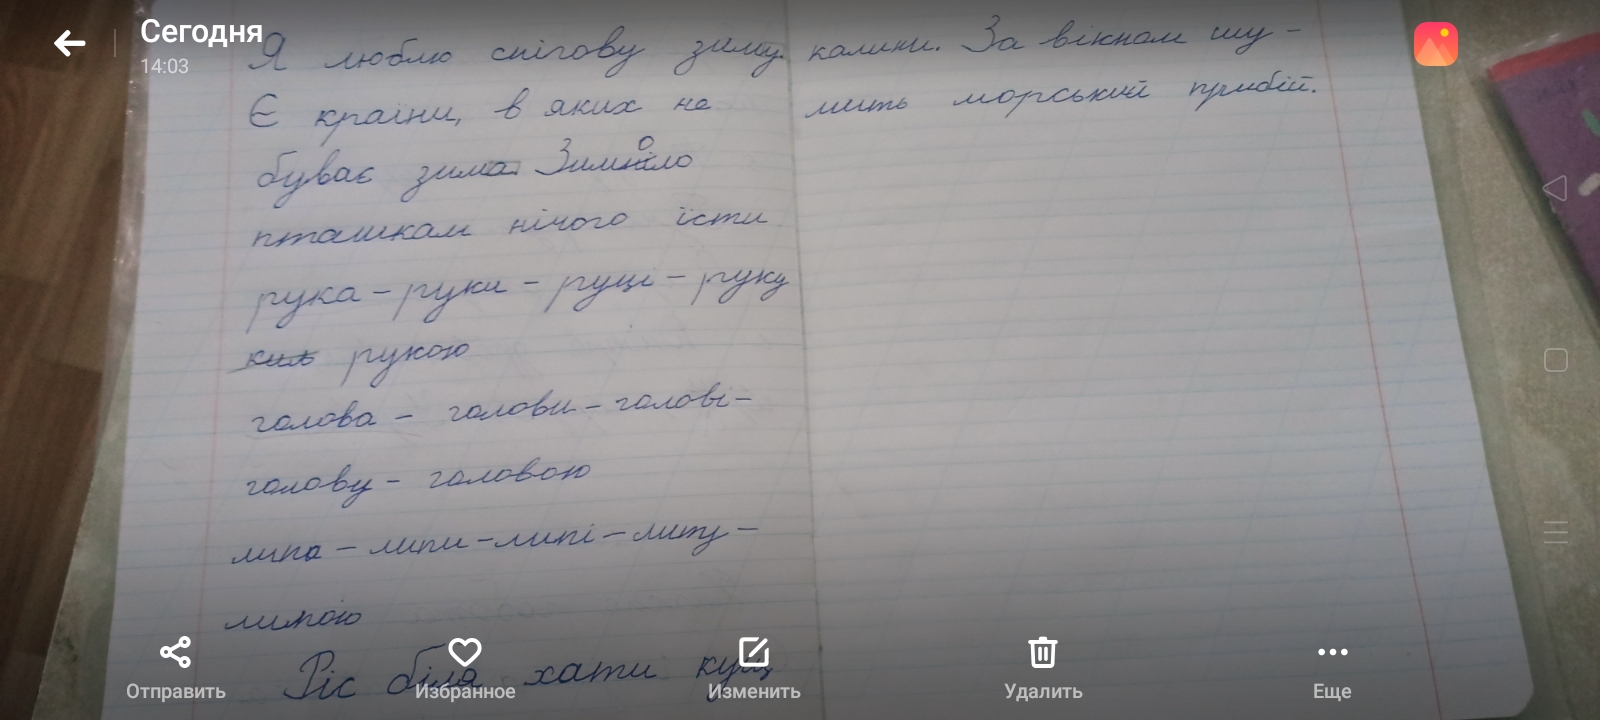 Сегодня
14:03
Я люблю снігову зиму.
Є країни, в яких не
буває зима. Зимою
пташкам нічого їсти
рука – руки – руці – руку
рукою
голова – голови – голові –
голову – головою
липа – липи – липі – липу –
липою
Ріс біля хати кущ
калини. За вікном шу –
мить морський прибій.
Отправить
Избранное
Изменить
Удалить
Еще